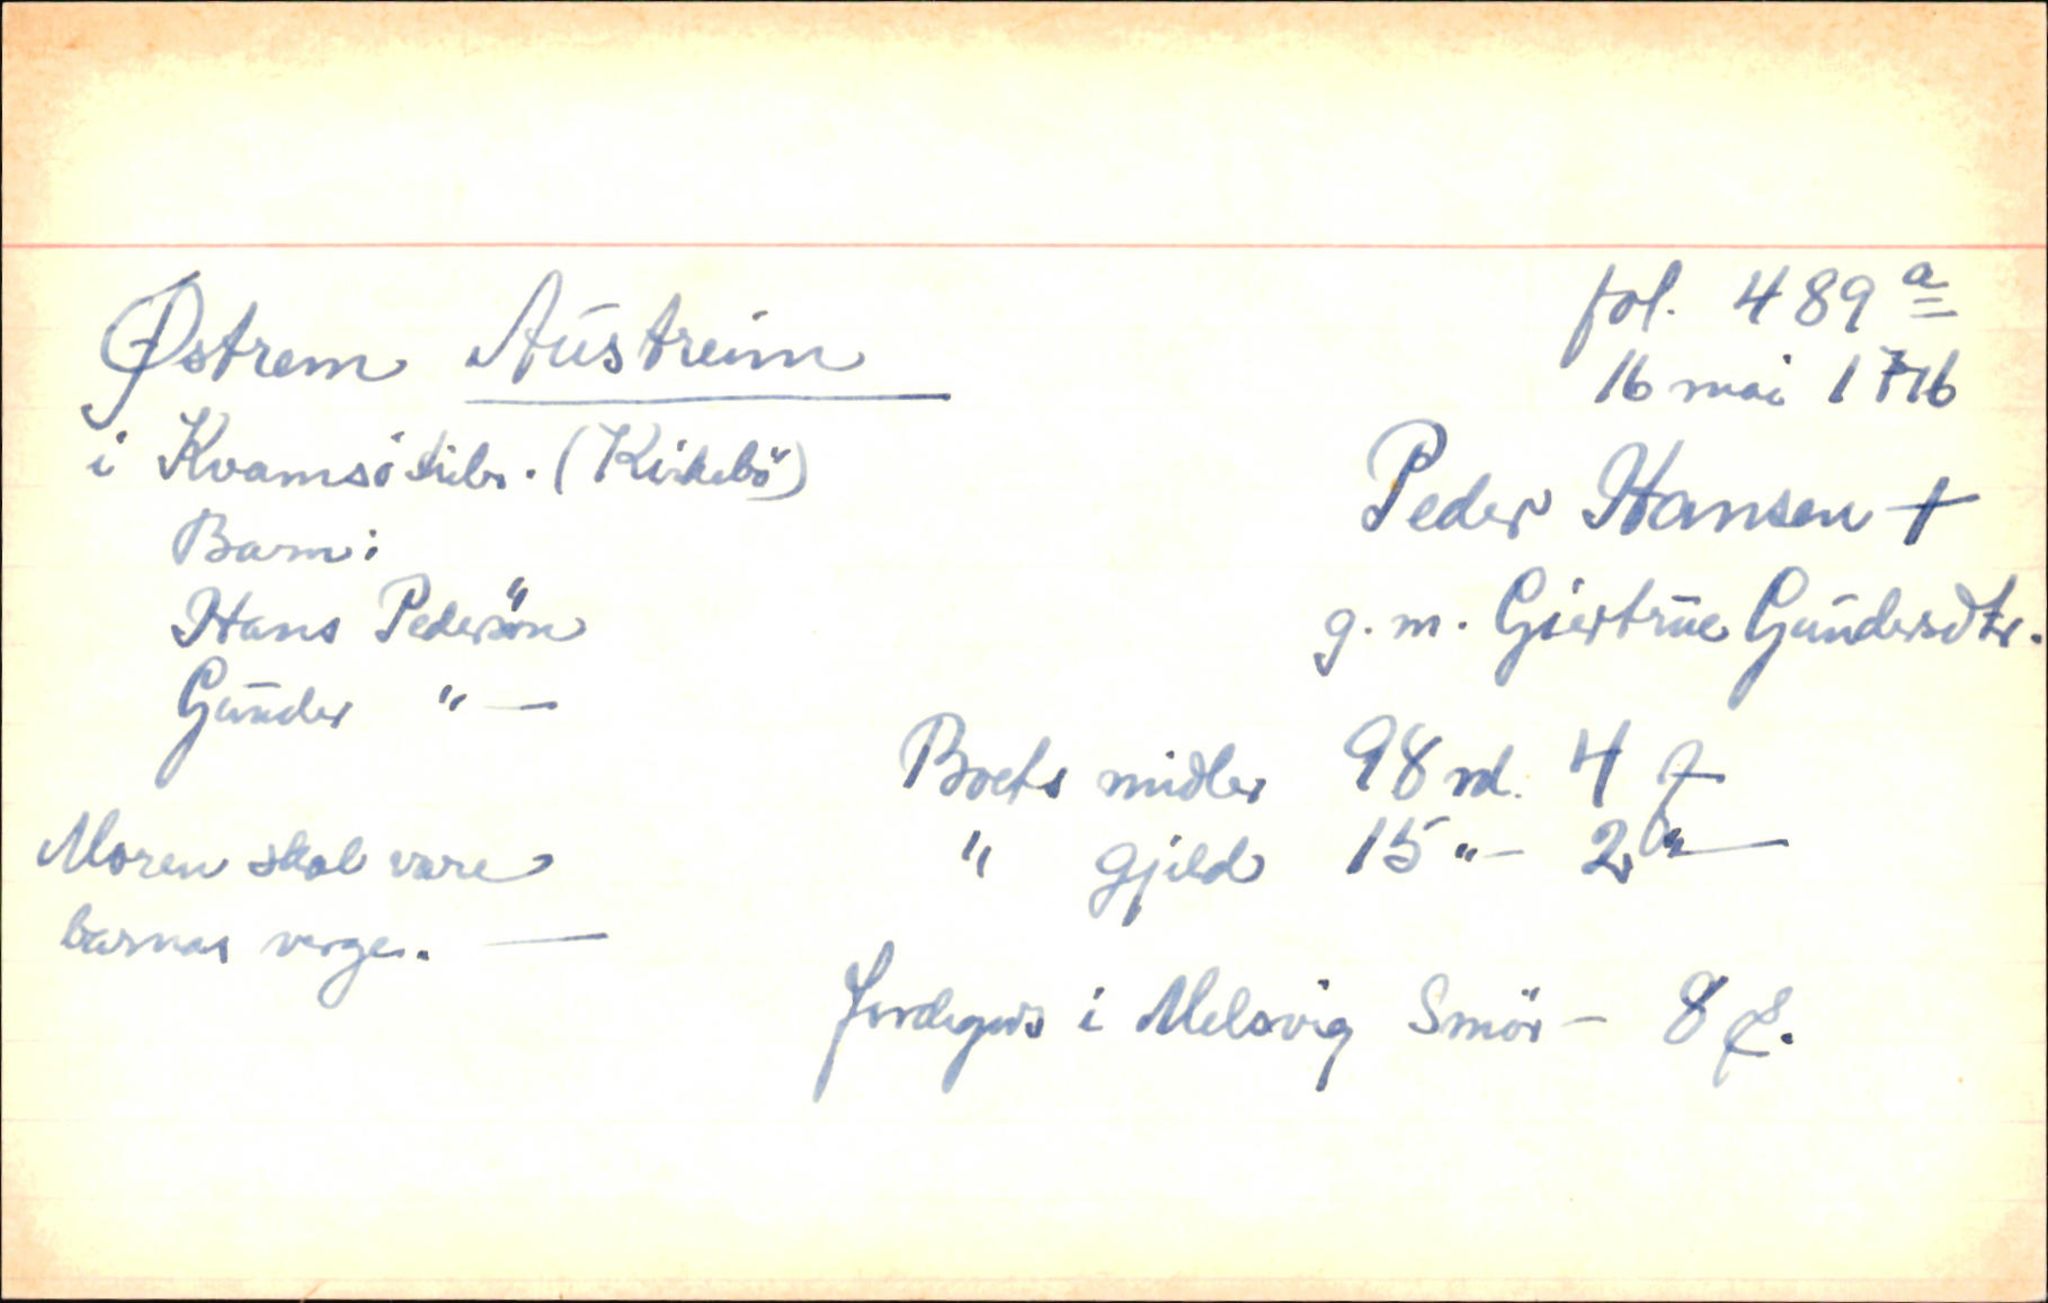 Østrem Austreim
fol. 489 a
16 mai 1716
i Kvamsö skibr. (Kirkebö)
Peder Hansen +
Barn:
g. m. Giertrue Gundersdtr.
Hans Pedersön
Gunder " —
Boets midler 98 rd. 4
" gjeld 15 " — 2 " —
Moren skal være
barnas verge. —
Jordegods i Melsvig Smör — 8